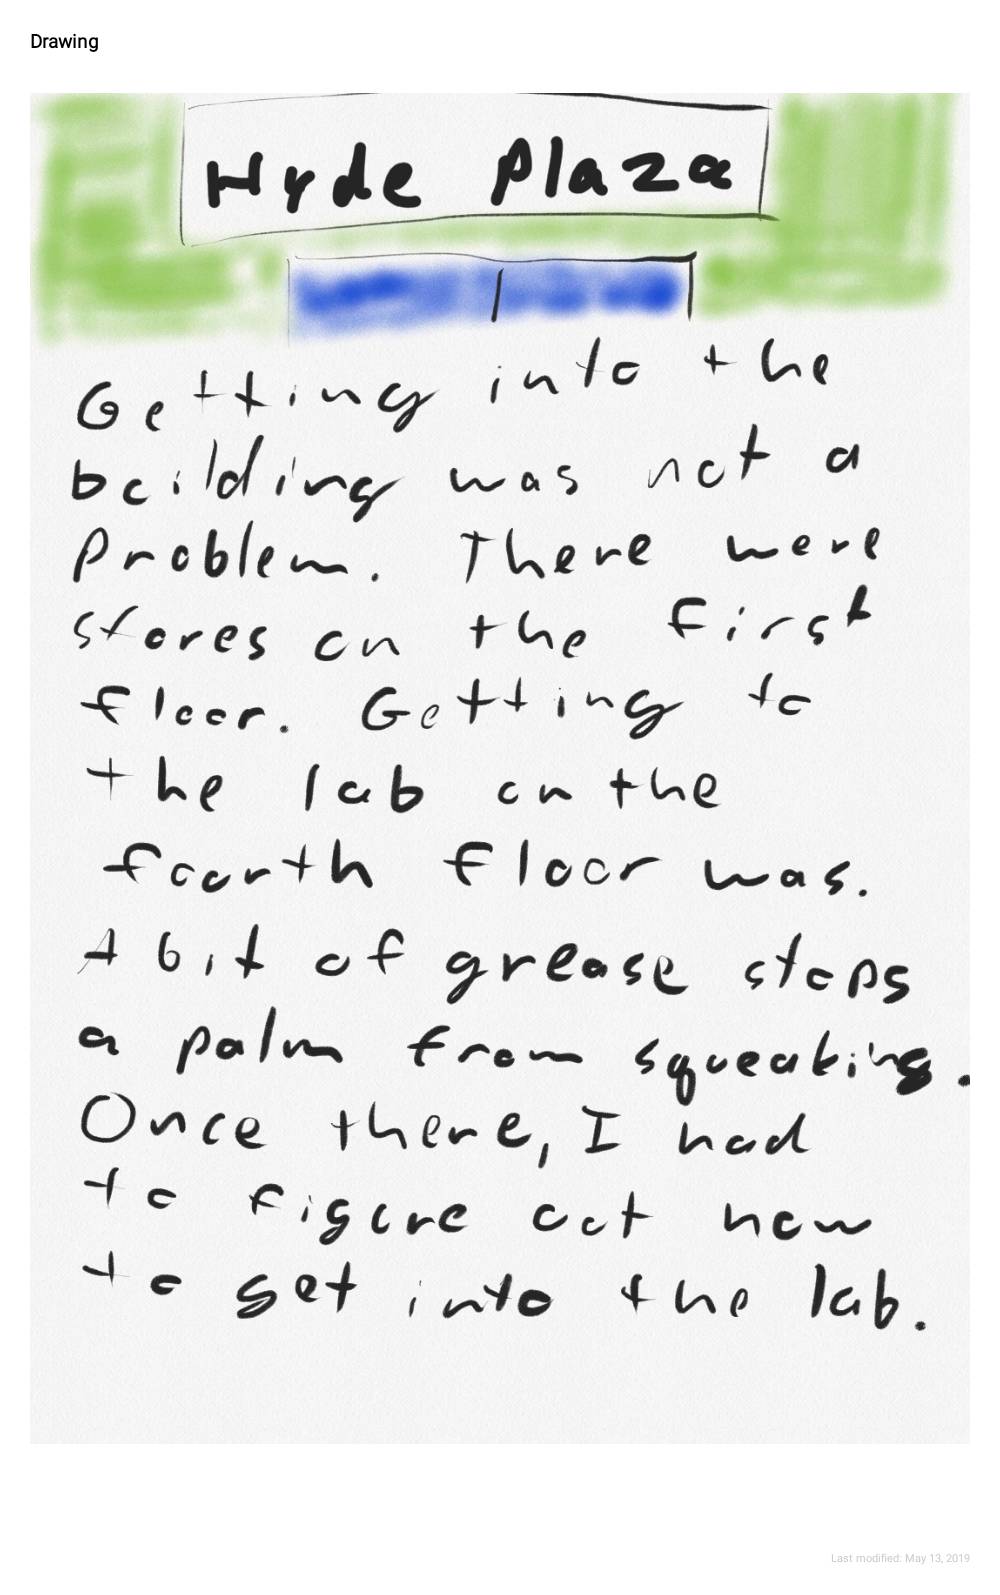 Drawing
Hyde Plaza
Getting into the
building was not a
problem. There were
stores on the first
floor. Getting to
the lab on the
fourth floor was.
A bit of grease stops
a palm from squeaking.
Once there, I had
to figure out how
to get into the lab.
Last modified: May 13, 2019